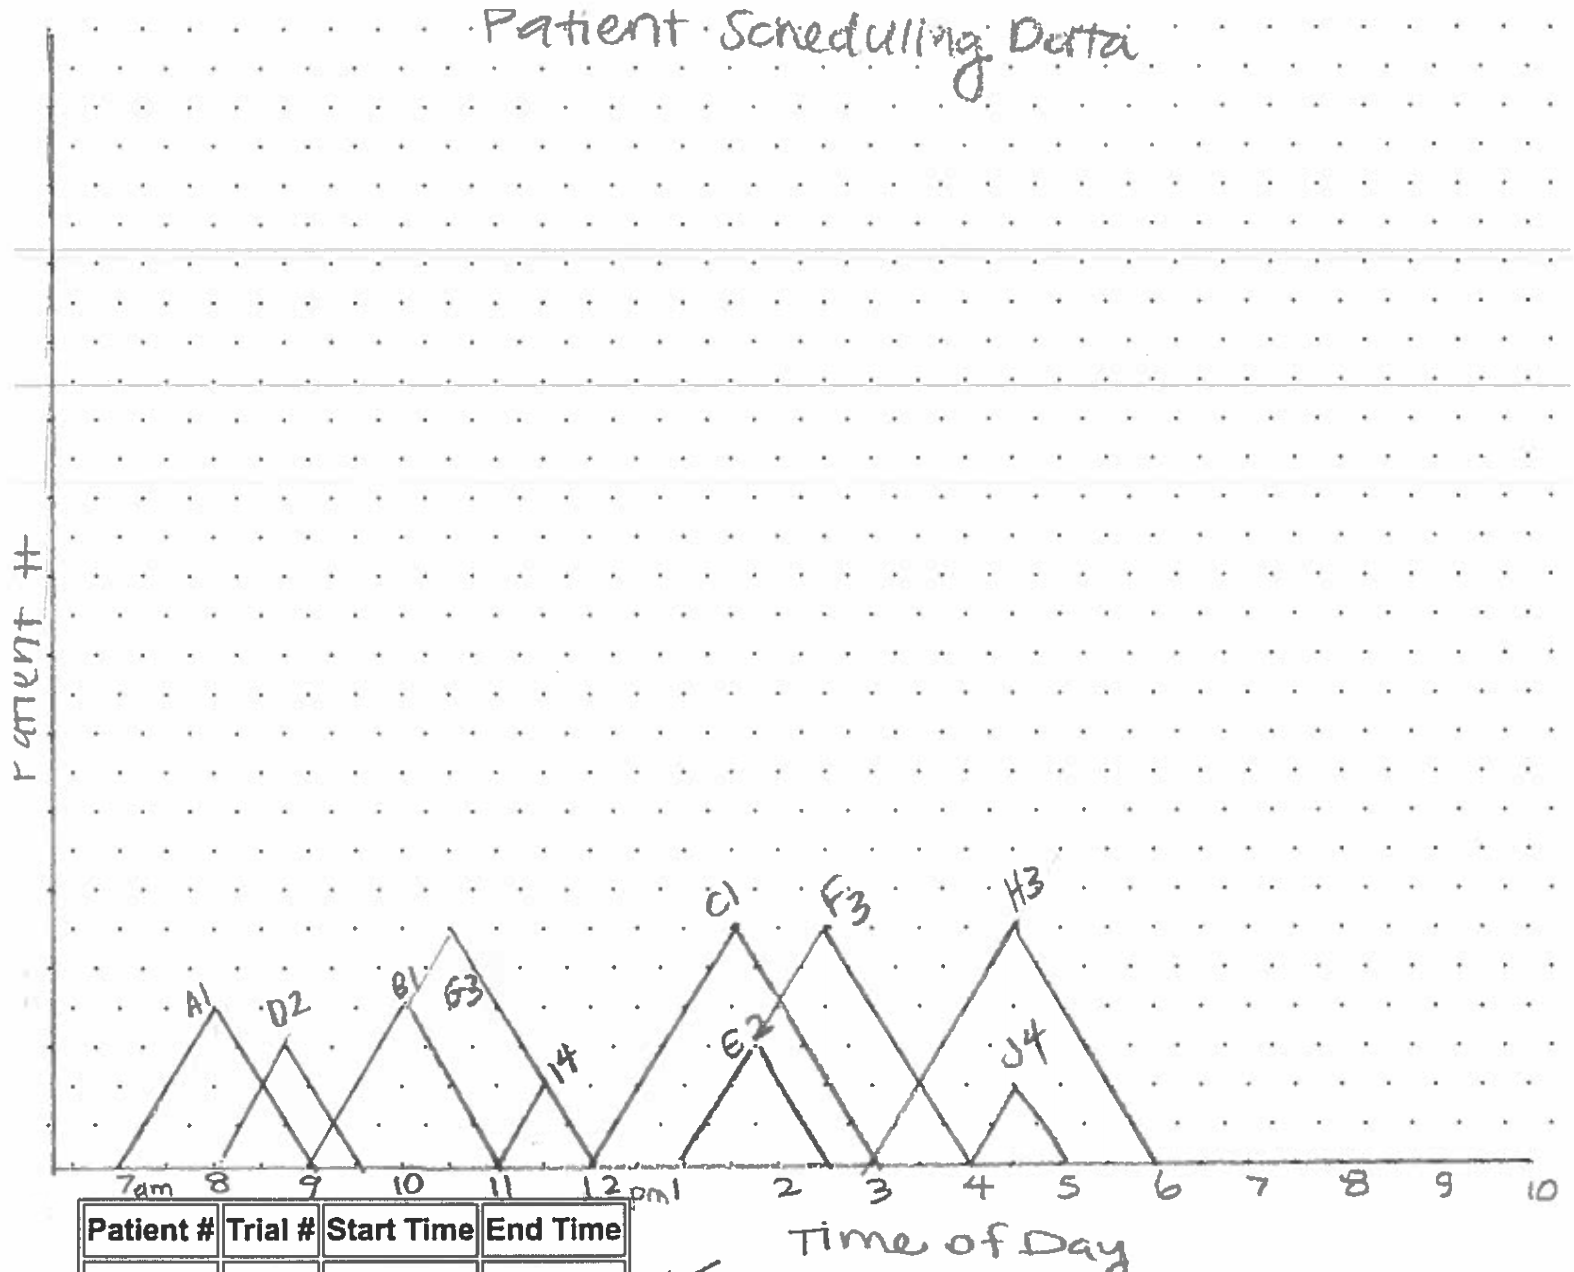 Patient Scheduling Data
Patient #
C1
F3
H3
A1
D2
B1
G3
E2
J4
I4
7am 8 9 10 11 12 pm1 2 3 4 5 6 7 8 9 10
Time of Day
Patient # Trial # Start Time End Time